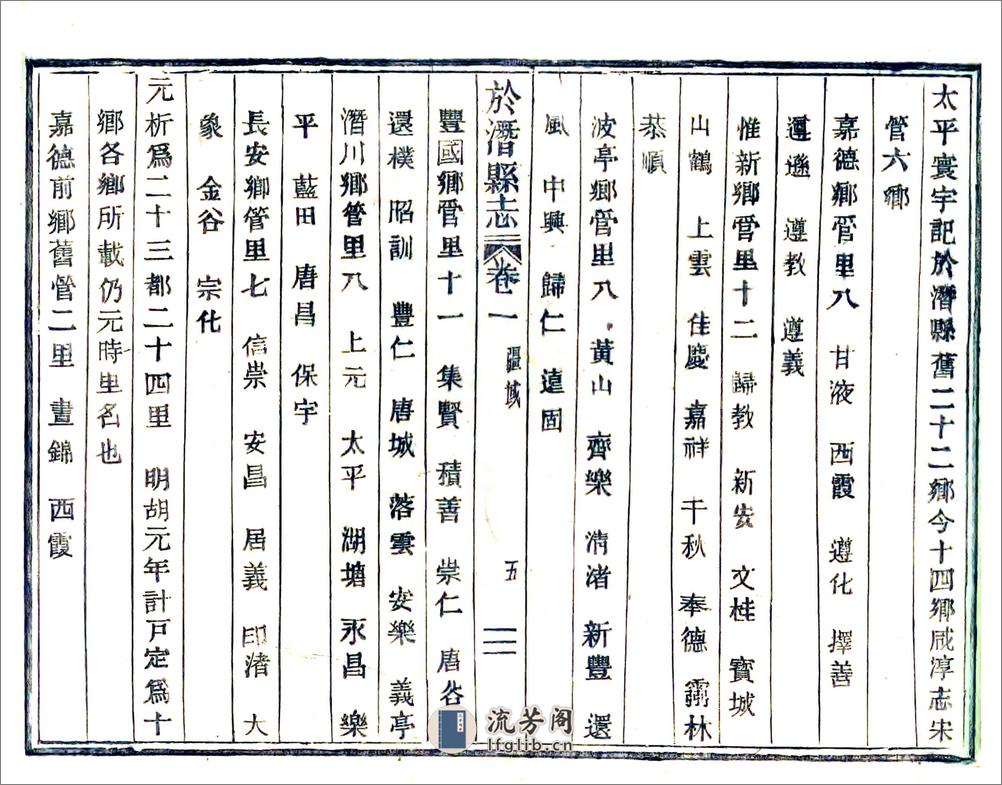 太平寰宇記於潛縣舊二十二鄉今十四鄉咸淳志宋
管六鄉
嘉德鄉管里八 甘液 西霞 遵化 擇善
遷遜 遵教 遵義
惟新鄉管里十二 歸教 新安 文桂 寶城
山鶴 上雲 佳慶 嘉祥 千秋 奉德 霱林
恭順
波亭鄉管里八 黃山 齊樂 清渚 新豐 還
風 中興 歸仁 遠固
於潛縣志 卷一 疆域 五
豐國鄉管里十一 集賢 積善 崇仁 唐谷
還樸 昭訓 豐仁 唐城 落雲 安樂 義亭
潛川鄉管里八 上元 太平 湖塘 永昌 樂
平 藍田 唐昌 保宇
長安鄉管里七 信崇 安昌 居義 印渚 大
象 金谷 宗化
元析爲二十三都二十四里 明胡元年計戸定爲十
鄉各鄉所載仍元時里名也
嘉德前鄉舊管二里 晝錦 西霞
流芳阁
lfglib.cn